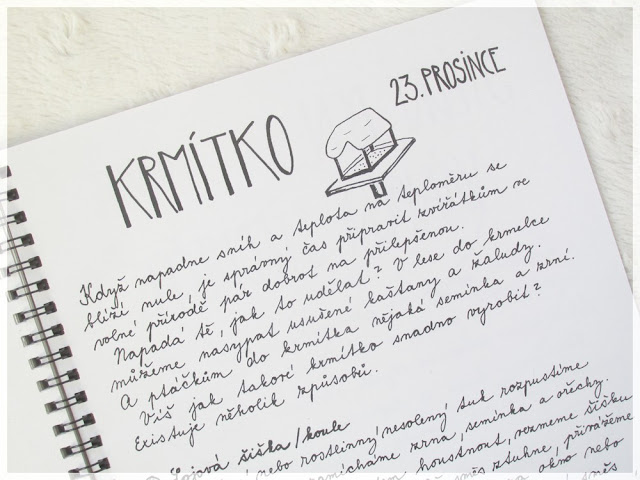 23. PROSINCE
KRMÍTKO
Když napadne sníh a teplota na teploměru se
blíží nule, je správný čas připravit zvířátkům ve
volné přírodě pár dobrot na přilepšenou.
Napadá tě, jak to udělat? V lese do krmelce
můžeme nasypat usušené kaštany a žaludy.
A ptáčkům do krmítka nějaká semínka a zrní.
Víš jak takové krmítko snadno vyrobit?
Existuje několik způsobů.
Lojová šiška/koule
nebo rostlinný nesolený tuk rozpustíme
zrna, semínka a ořechy.
houstnout, vezmeme šišku
směs ztuhne, přivážeme
okno nebo
směs